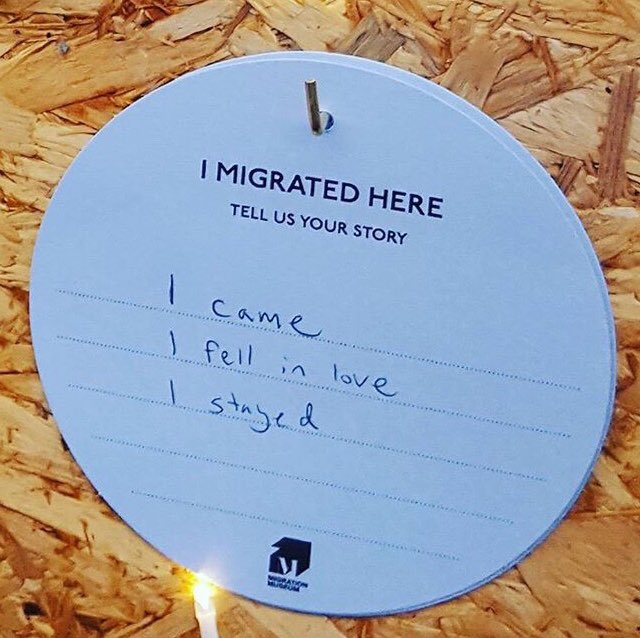 I MIGRATED HERE
TELL US YOUR STORY
I came
I fell in love
I stayed
MIGRATION
MUSEUM